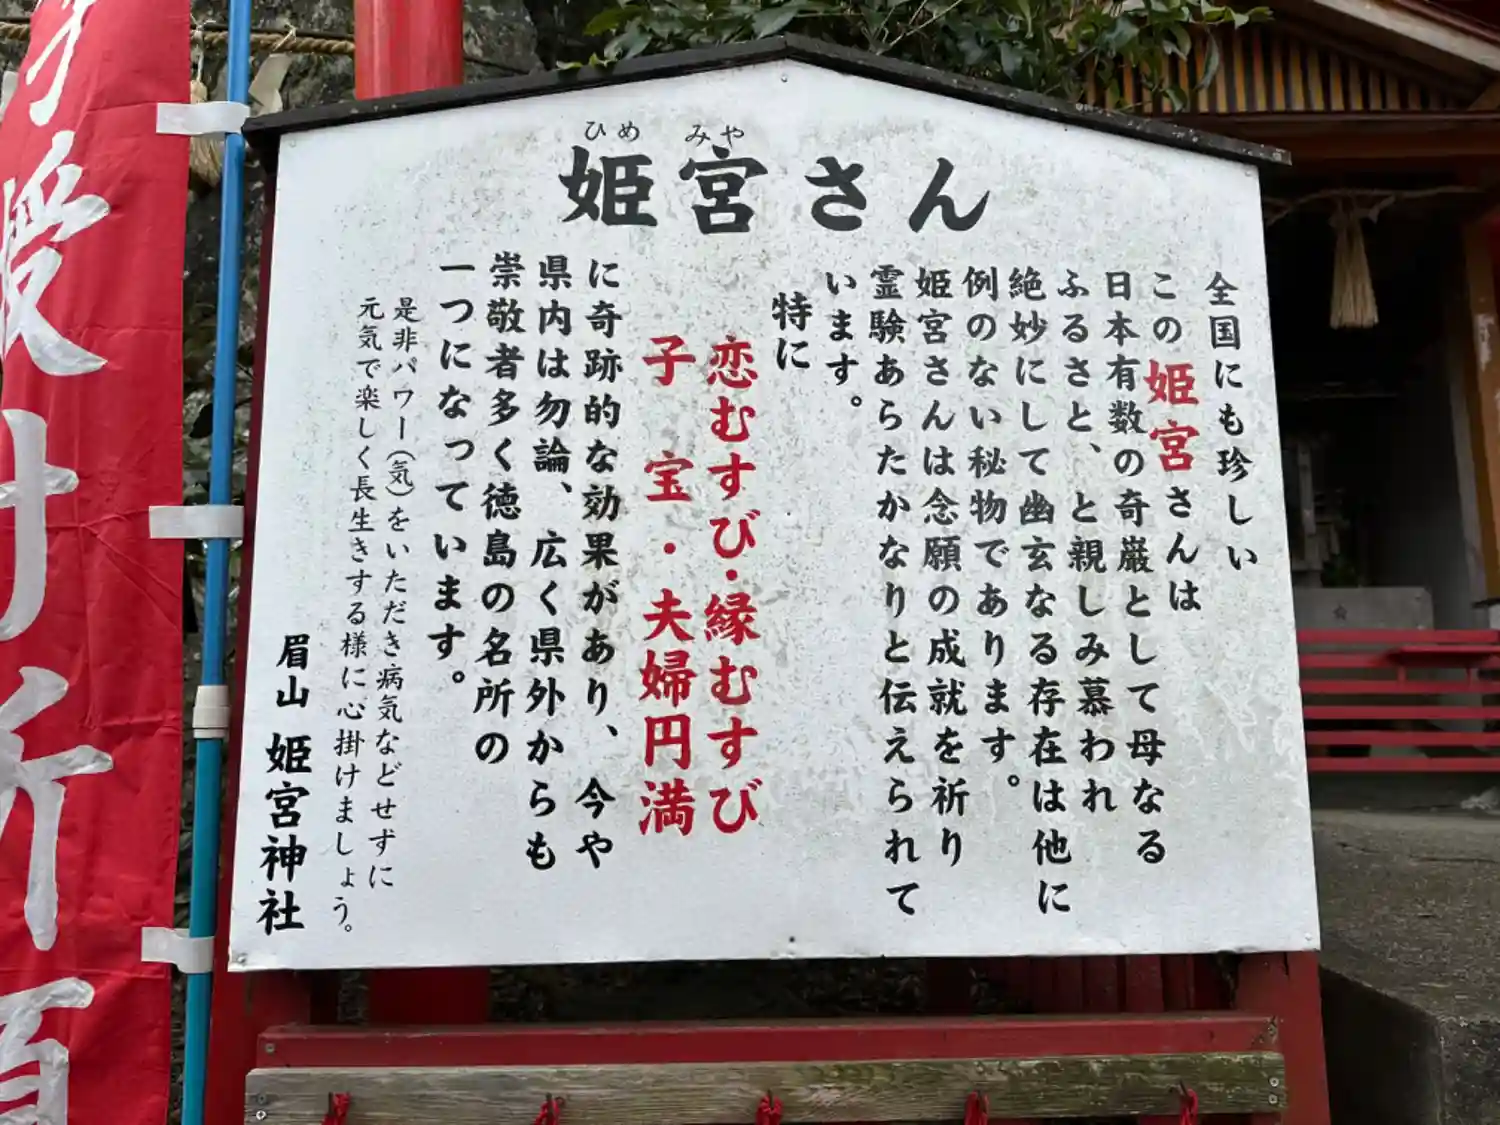 ひめ みや
姫宮さん
全国にも珍しい
この姫宮さんは
日本有数の奇巌として母なる
ふるさと、と親しみ慕われ
絶妙にして幽玄なる存在は他に
例のない秘物であります。
姫宮さんは念願の成就を祈り
霊験あらたかなりと伝えられて
います。
特に
恋むすび・縁むすび
子宝・夫婦円満
に奇跡的な効果があり、今や
県内は勿論、広く県外からも
崇敬者多く徳島の名所の
一つになっています。
是非パワー(気)をいただき病気などせずに
元気で楽しく長生きする様に心掛けましょう。
眉山 姫宮神社
授け祈